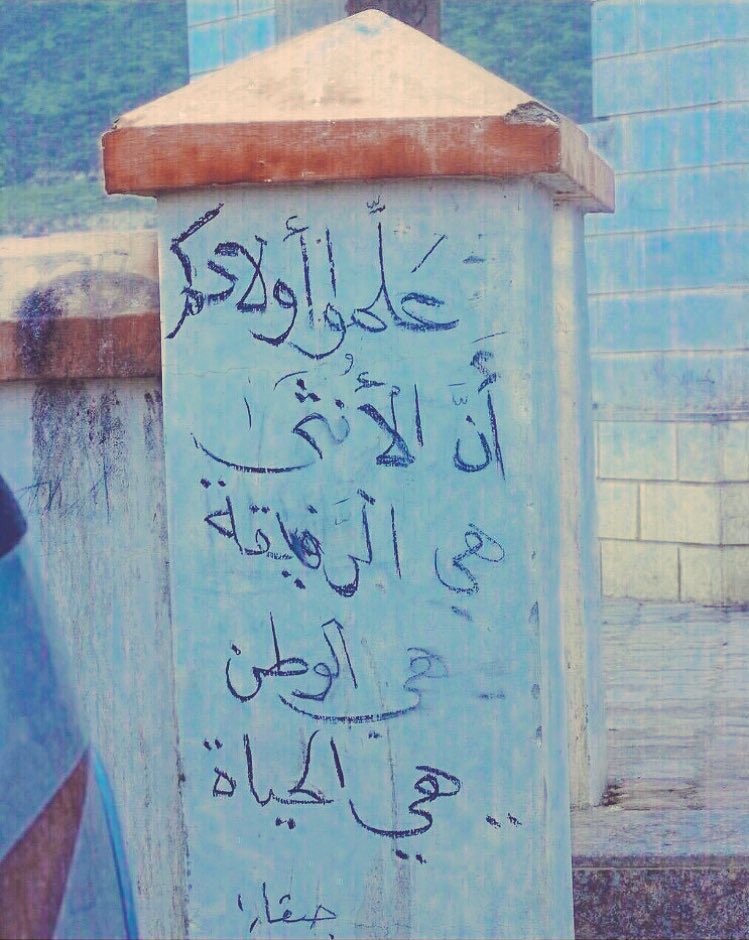 علّموا أولادكم
أنَّ الأُنثى
هي الرَّفيقة
هي الوطن
هي الحياة ..